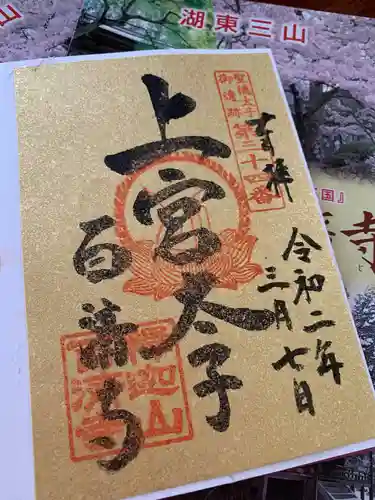 湖東三山
聖徳太子
御遺跡
第三十四番
奉拝
上宮太子
百済寺
令和二年
三月七日
釈迦山
百済寺
国』
寺